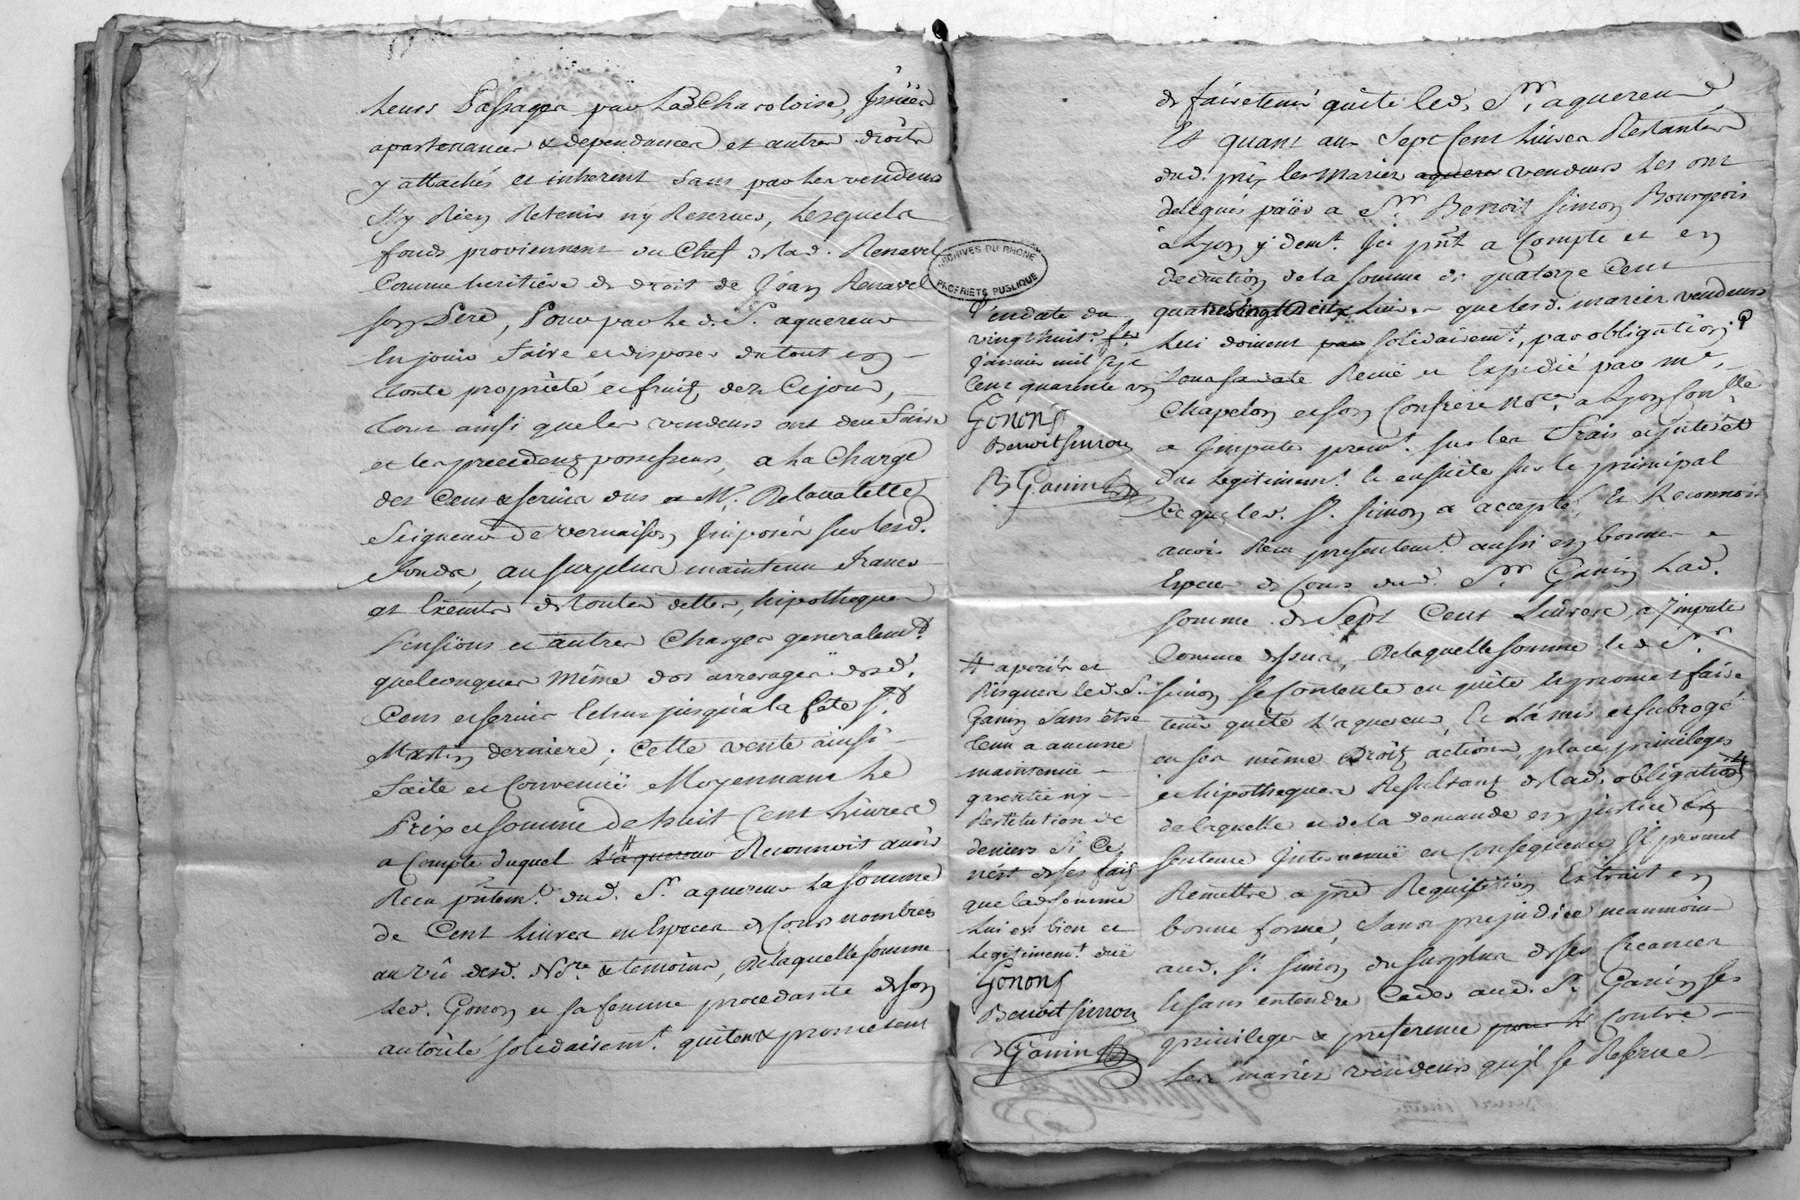 Leurs Passages par La Charoloise, Issües
apartenances & dependances et autres droits
y attachés et inherent sans par les vendeurs
Ny Rien Retenir ny Reserver, Lesquels
fonds proviennent du Chef de lad. Renavel
Comme heritière de droit de Jean Renavel
son Pere, Pour par le d. Sr. aquereur
En jouir faire et disposer du tout en
toute propriété et fruits dez Cejour,
tour ainsi que les vendeurs ont deu faire
et les precedents possesseurs, a La Charge
des Cens & servis dus a Mr. Delavalette
Seigneur de vernaison Imposés sur lesd.
fonds, au surplus maintenu francs
et Exemts de toutes dettes, hipotheques
Pensions et autres Charges generalemt.
quelconques même dos arrerages desd.
Cens et servis Echus jusqu'a la fête St.
Martin derniere; Cette vente ainsi
faite et Convenüe Moyennant Le
Prix et somme de huit Cent Livres
a Compte duquel L'aquereur Reconnoit avoir
Receu pntemt. dud. Sr. aquereur La somme
de Cent Livres en Especes de Cours nombrées
au vû desd. Nore. & temoins, de laquelle somme
Led. Gonon et sa femme procedante de son
autorité solidairemt. quitent & prometent
de faire tenir quitte led. Sr. aquereur,
Et quant aux Sept Cent Livres Restantes
dud. prix les mariés aquereurs vendeurs Les ont
delegués païer a Sr. Benoit Simon Bourgeois
à Lyon y demt. Ici pnt a Compte et en
deduction de la somme de quatorze Cent
quatre vingt dix Livres que lesd. mariés vendeurs
Lui doivent par solidairemt., par obligation
sous sa date Receüe et Expedié par me.
Chapelon et son Confrere nores. a Lyon
a Imputer premt. sur les frais et interêts
dus legitimemt. & ensuite sur le principal
Ce que led. Sr. Simon a accepté, Et Reconnoit
avoir Receu presentemt. aussi en bonnes
Especes de Cours dud. Sr. Ganin Lad.
somme de Sept Cent Livres, a Imputer
Comme dessus, de laquelle somme le d. Sr.
Simon se Contente en quite et promet faire
tenir quite L'aquereur, Et L'a mis et subrogé
en ses même droits, actions, place privileges
et hipotheques Resultants de lad. obligation
de laquelle et de la demande en justice
sentence Intervenüe en Consequence Il promet
Remettre a pre Requisition Extrait en
bonne forme, Sans prejudice neanmoins
aud. Sr. Simon du surplus de ses Creances
et sans entendre Ceder aud. Sr. Ganin ses
privileges & preference pour le Contre
Les mariés vendeurs qu'il se Reserve
en date du
vingt huit
Janvier mil sept
Cent quarante un
Gonon
Benoit Simon
B Ganin
a perils et
Risques led. Sr.
Ganin sans être
tenu a aucune
maintenüe
garentie ny
Restitution de
deniers Si Ce
n'est de ses faits
que lad. somme
Lui est bien et
legitimemt. düe
Gonon
Benoit Simon
B Ganin
ARCHIVES DU RHONE
PROPRIETE PUBLIQUE